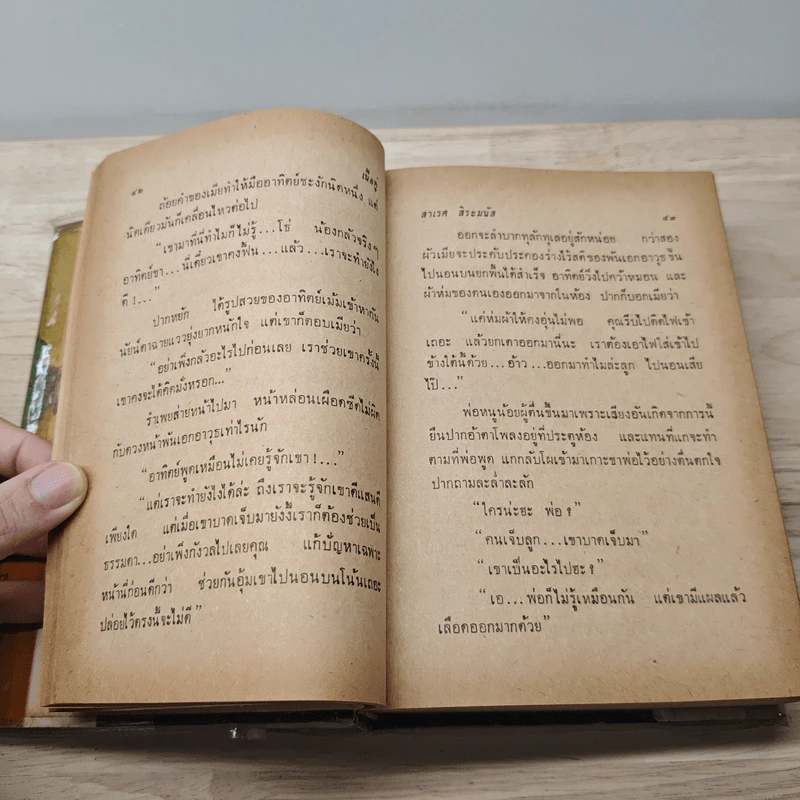 ๔๒
เนื้อคู่
ถ้อยคำของเมียทำให้มืออาทิตย์ชะงักนิดหนึ่ง, แต่
นิดเดียวมันก็เคลื่อนไหวต่อไป
“เขามาที่นี่ทำไมก็ไม่รู้...โธ่ น้องกลัวจริงๆ
อาทิตย์ขา...นี่เดี๋ยวเขาคงฟื้น...แล้ว...เราจะทำยังไง
ดี !...”
ปากหยัก ได้รูปสวยของอาทิตย์เม้มเข้าหากัน
นัยน์ตาฉายแววยุ่งยากหนักใจ แต่เขาก็ตอบเมียว่า
“อย่าเพิ่งกลัวอะไรไปก่อนเลย เราช่วยเขาครั้งนี้
เขาคงจะได้คิดมั่งหรอก...”
รำเพยส่ายหน้าไปมา หน้าหล่อนเผือดซีดไม่ผิด
กับดวงหน้าพันเอกอาวุธเท่าไรนัก
“อาทิตย์พูดเหมือนไม่เคยรู้จักเขา !...”
“แต่เราจะทำยังไงได้ล่ะ ถึงเราจะรู้จักเขาดีแสนดี
เพียงใด แต่เมื่อเขาบาดเจ็บมายังงี้เราก็ต้องช่วยเป็น
ธรรมดา...อย่าเพิ่งกังวลไปเลยคุณ แก้ปัญหาเฉพาะ
หน้านี่ก่อนดีกว่า ช่วยกันอุ้มเขาไปนอนบนโน้นเถอะ
ปล่อยไว้ตรงนี้จะไม่ดี”
สาเรศ สิระมนัส
๔๓
ออกจะลำบากทุลักทุเลอยู่สักหน่อย กว่าสอง
ผัวเมียจะประคับประคองร่างไร้สติของพันเอกอาวุธขึ้น
ไปนอนบนยกพื้นได้สำเร็จ อาทิตย์วิ่งไปคว้าหมอน และ
ผ้าห่มของตนเองออกมาจากในห้อง ปากก็บอกเมียว่า
“แต่ห่มผ้าให้คงอุ่นไม่พอ คุณรีบไปติดไฟเข้า
เถอะ แล้วยกเตาออกมานี่นะ เราต้องเอาไฟใส่เข้าไป
ข้างใต้นี้ด้วย...อ้าว...ออกมาทำไมล่ะลูก ไปนอนเสีย
ไป๊...”
พ่อหนูน้อยผู้ตื่นขึ้นมาเพราะเสียงอันเกิดจากการนี้
ยืนปากอ้าตาโพลงอยู่ที่ประตูห้อง และแทนที่แกจะทำ
ตามที่พ่อพูด แกกลับโผเข้ามาเกาะขาพ่อไว้อย่างตื่นตกใจ
ปากถามละล่ำละลัก
“ใครน่ะฮะ พ่อ ?”
“คนเจ็บลูก...เขาบาดเจ็บมา”
“เขาเป็นอะไรไปฮะ ?”
“เอ...พ่อก็ไม่รู้เหมือนกัน แต่เขามีแผลแล้ว
เลือดออกมากด้วย”